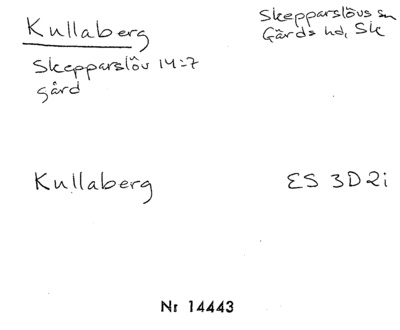 Kullaberg
Skepparslövs sn
Gärds hd, Sk
Skepparslöv 14:7
gård
Kullaberg
ES 3D2i
Nr 14443